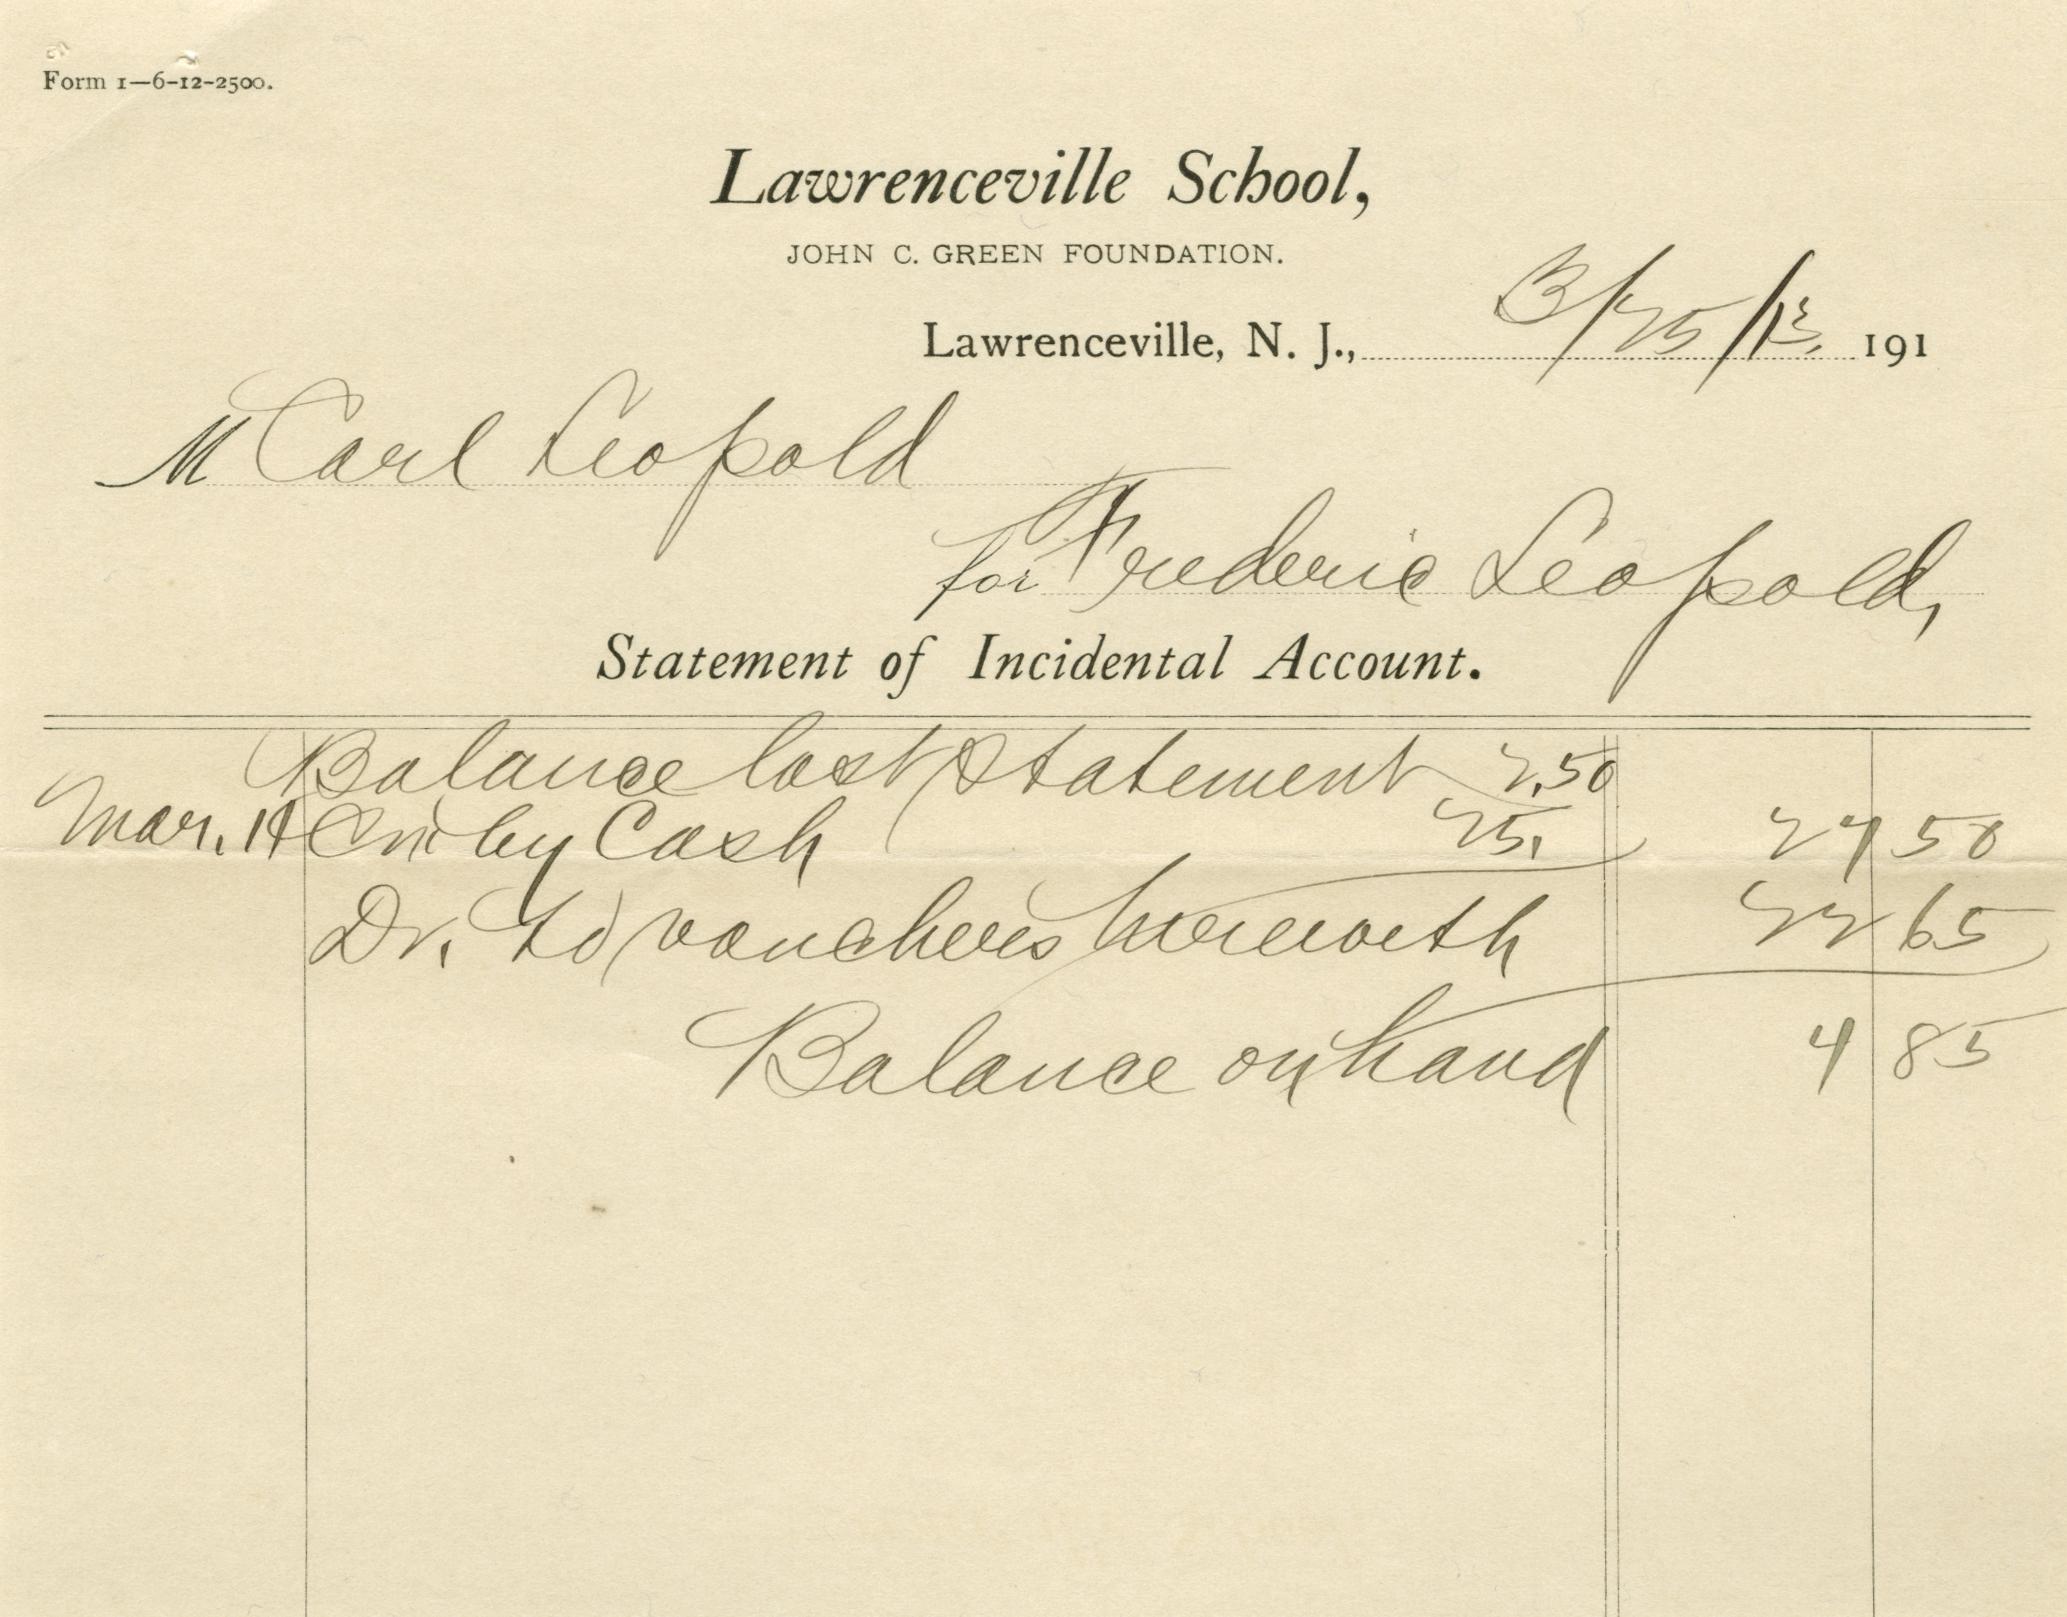 Form 1—6-12-2500.
Lawrenceville School,
JOHN C. GREEN FOUNDATION.
Lawrenceville, N. J., 3/25/13. 191
M Carl Leopold
for Frederic Leopold,
Statement of Incidental Account.
Balance last Statement 2.50
Mar. 14 Cr. by Cash 25. 27 50
Dr. to vouchers herewith 22 65
Balance on hand 4 85